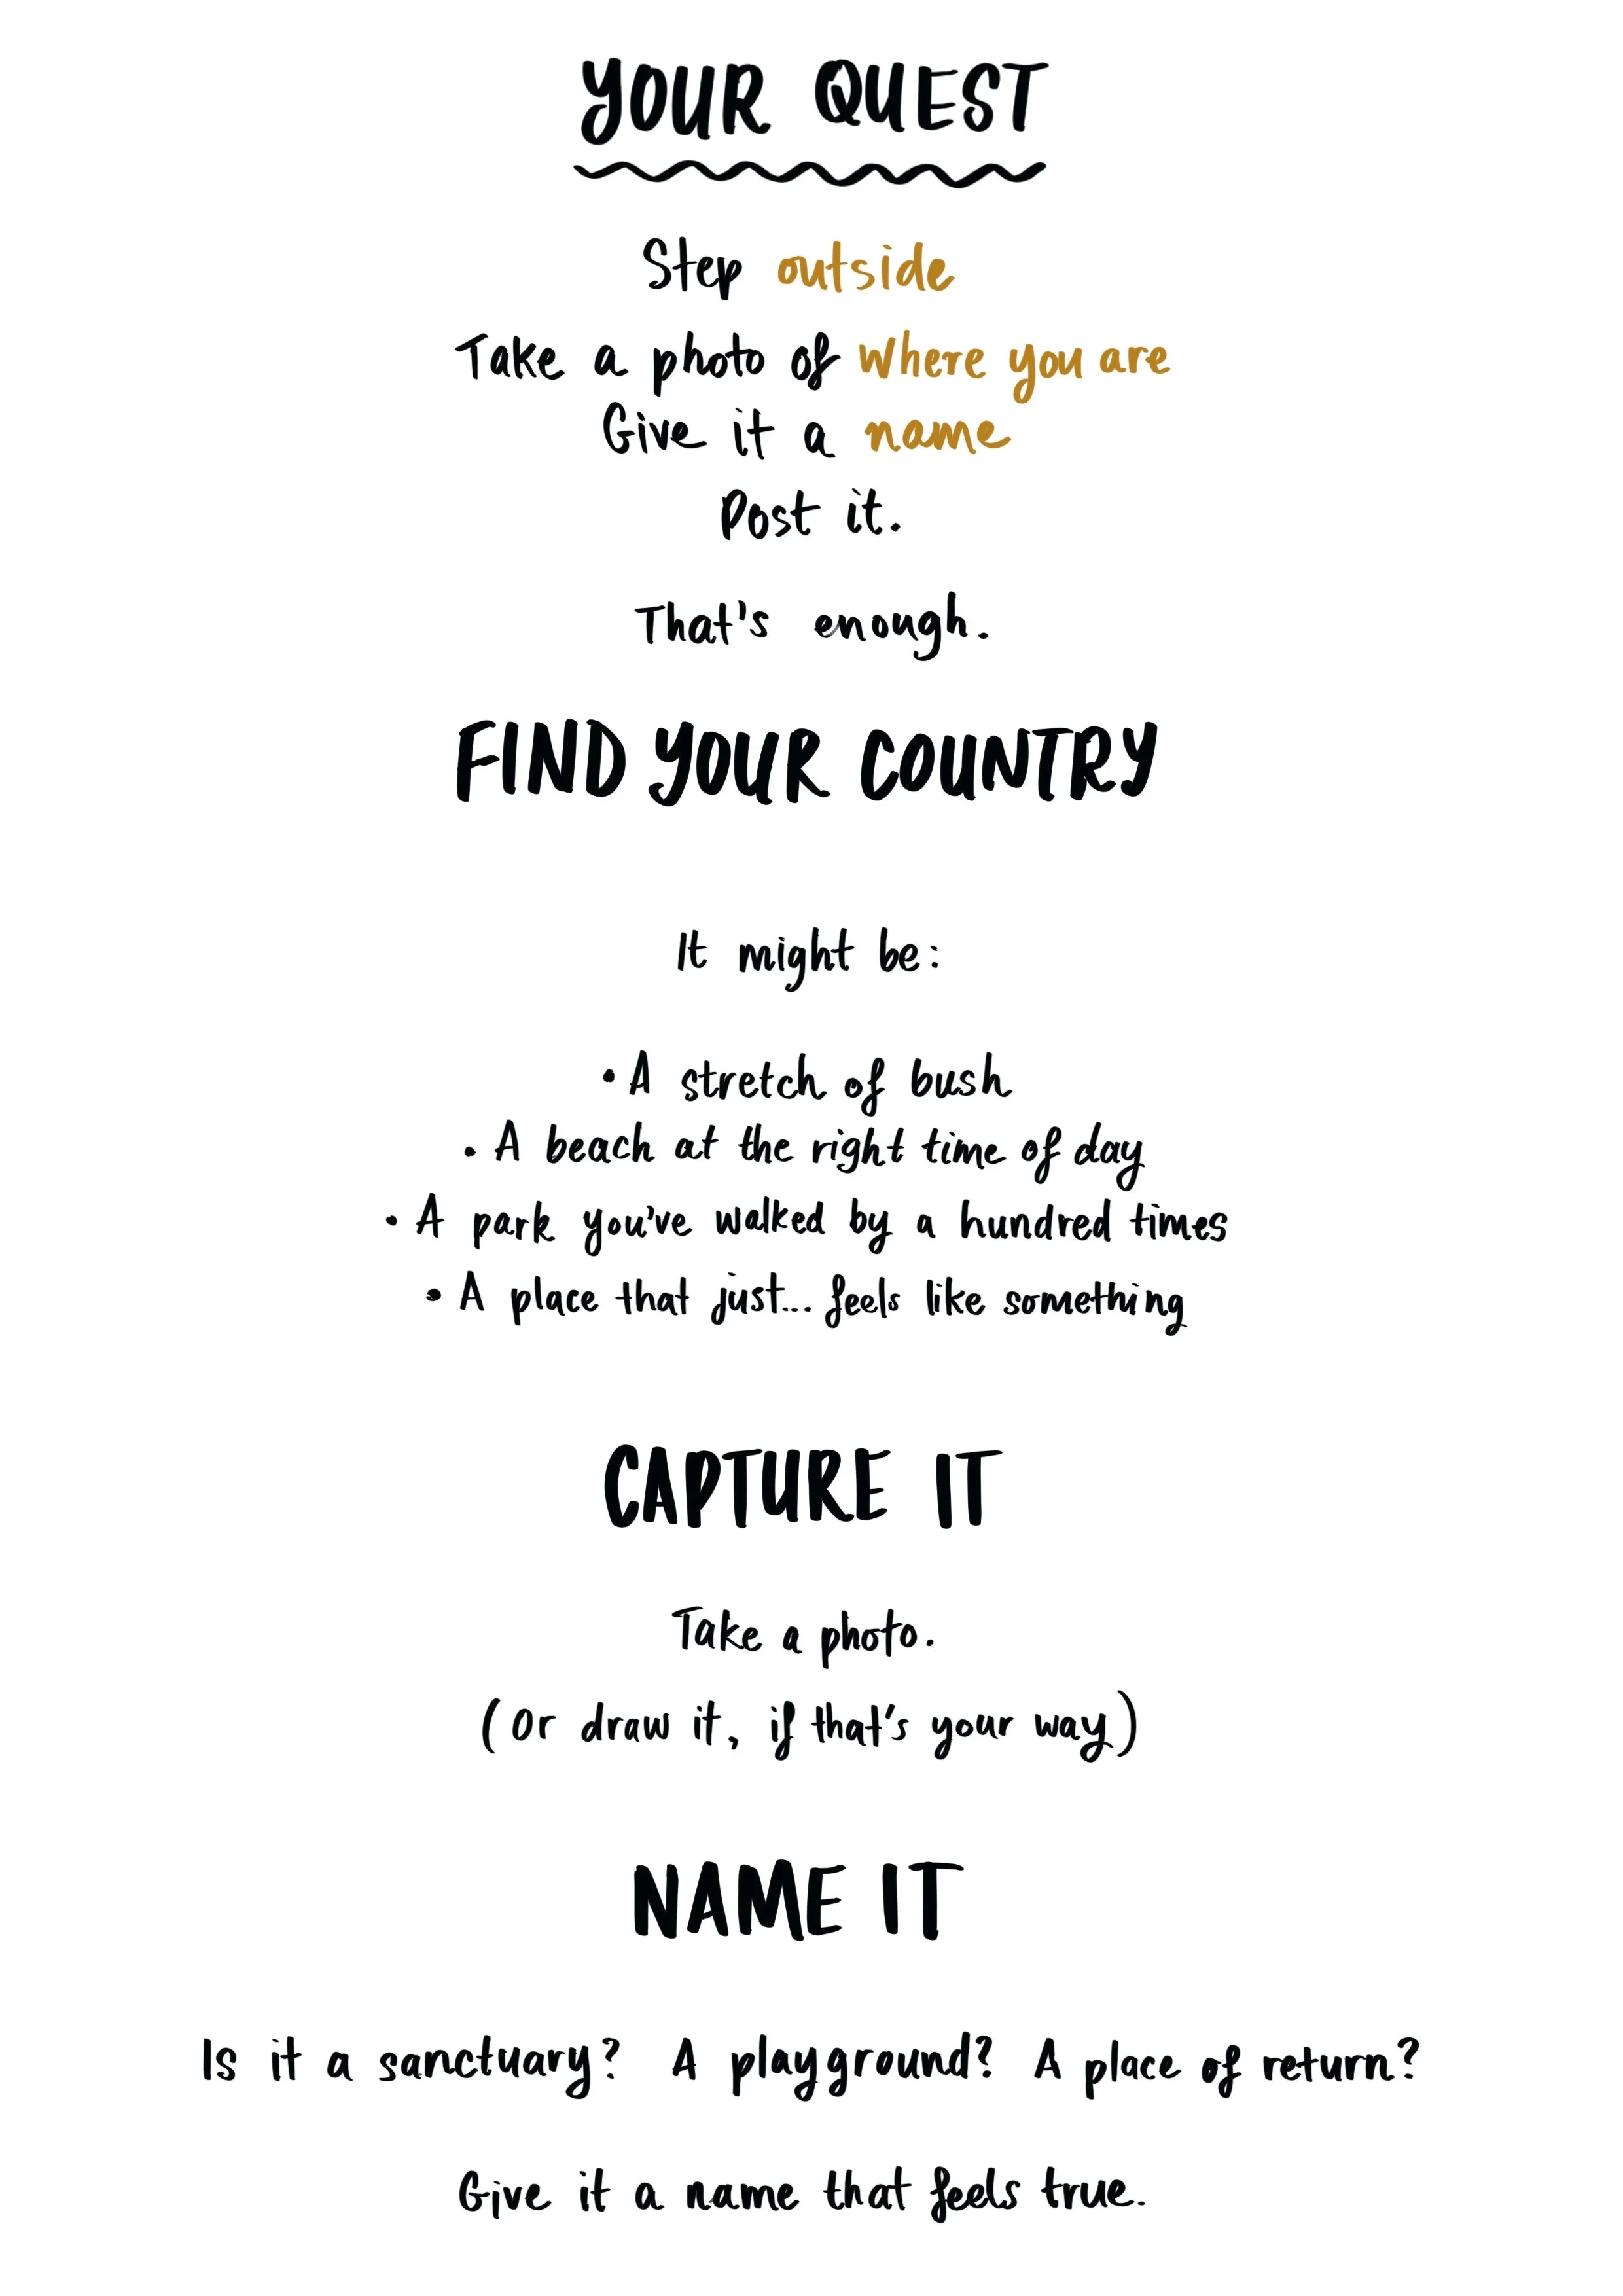 YOUR QUEST
Step outside
Take a photo of where you are
Give it a name
Post it.
That's enough.
FIND YOUR COUNTRY
It might be:
• A stretch of bush
• A beach at the right time of day
• A park you've walked by a hundred times
• A place that just... feels like something
CAPTURE IT
Take a photo.
(Or draw it, if that's your way)
NAME IT
Is it a sanctuary? A playground? A place of return?
Give it a name that feels true.